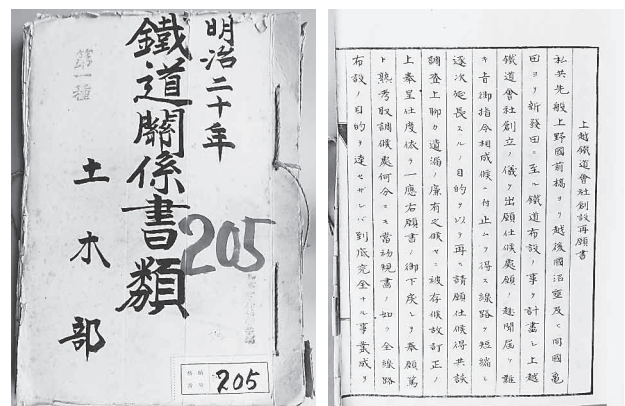 明治二十年
鐵道關係書類
205
第一種
土木部
205
上越鐵道會社創設再願書
私共先般上野國前橋ヨリ越後國沼垂及ヒ同國亀
田ヨリ新發田ニ至ル鐵道布設ノ事ヲ計畫シ上越
鐵道會社創立ノ儀ヲ出願仕候處願ノ趣聞届ケ難
キ旨御指令相成候ニ付止ムヲ得ス線路ヲ短縮シ
逐次延長スルノ目的ヲ以テ再ヒ請願仕候得共談
調査上聊カ遺漏ノ廉有之候ヤニ被存候故訂正ノ
上奉呈仕度依テ一應右願書ノ御下戻シヲ奉願篤
ト熟考取調候處何分ニモ當初規畫ノ如ク全線路
布設ノ目的ヲ達セザレバ到底完全ナル事業成リ